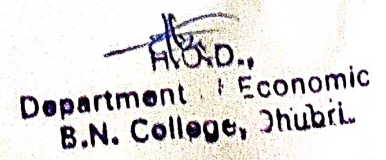 H.O.D.,
Department Economic
B.N. College, Dhubri.